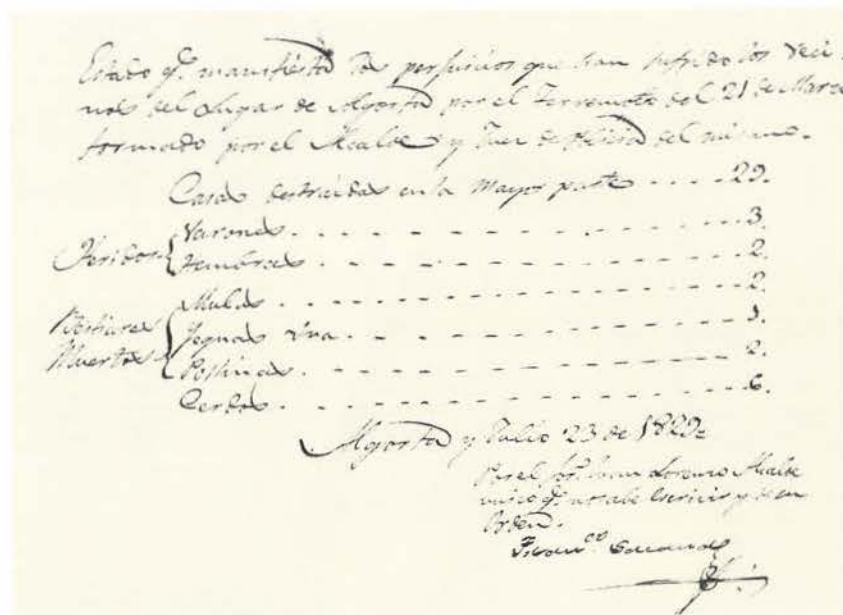 Estado q.e manifiesta los perjuicios que han sufrido los veci-
nos del Lugar de Algorfa por el Terremoto del 21 de Marzo
formado por el Alcalde y Juez de Policia del mismo.
Casas destruidas en la mayor parte . . . . 29.
Heridos { Varones . . . . . . . . . . . 3.
Hembras . . . . . . . . . . . 2.
Bestiares Muertos { Mulas . . . . . . . . . . . 2.
Yeguas una . . . . . . . . . . 1.
Pollinas . . . . . . . . . . . 2.
Cerdos . . . . . . . . . . . 6.
Algorfa y Julio 23 de 1829=
Por el Sor. Juan Lorenzo Alcalde
unico q.e no sabe Escrivir y de su
Orden.
Fran.co